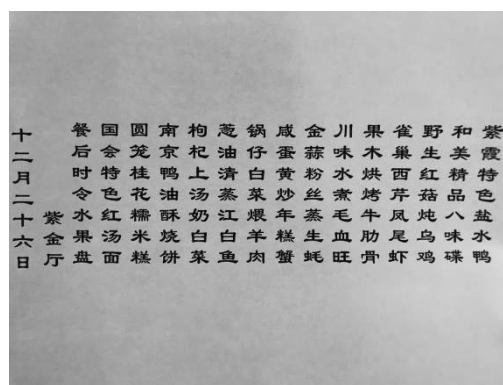 紫霞特色盐水鸭
和美精品八味碟
野生红菇炖乌鸡
雀巢西芹凤尾虾
果木烘烤牛肋骨
川味水煮毛血旺
金蒜粉丝蒸生蚝
咸蛋黄炒年糕蟹
锅仔白菜煨羊肉
葱油清蒸江白鱼
枸杞上汤奶白菜
南京鸭油酥烧饼
圆笼桂花糯米糕
国会特色红汤面
餐后时令水果盘
紫金厅
十二月二十六日